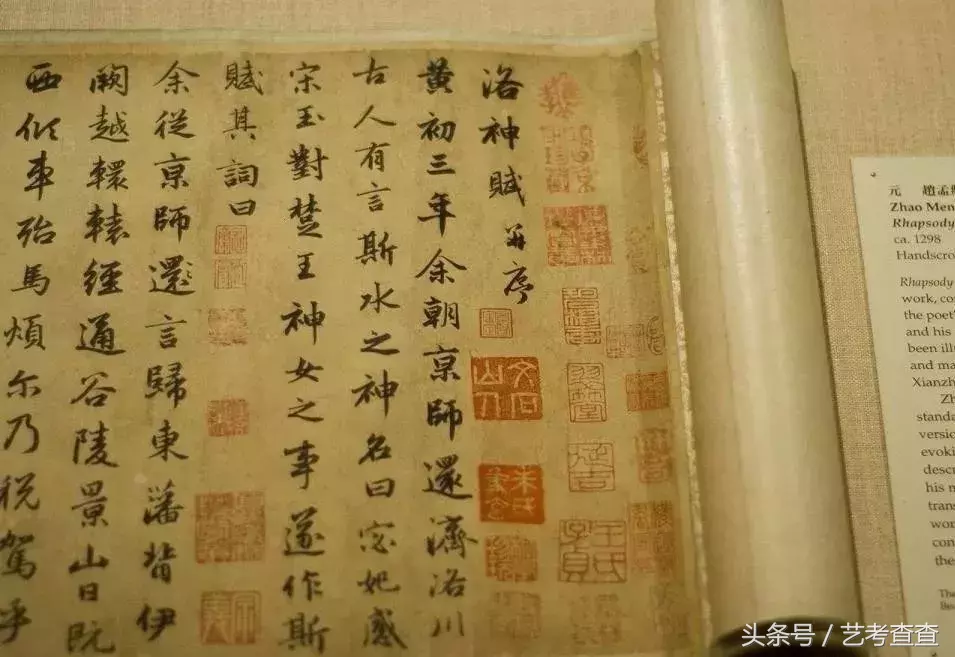 洛神賦并序
黃初三年余朝京師還濟洛川
古人有言斯水之神名曰宓妃感
宋玉對楚王神女之事遂作斯
賦其詞曰
余從京師還言歸東藩背伊
闕越轘轅經通谷陵景山日既
西傾車殆馬煩尔乃稅駕乎
元 趙孟
Zhao Men
Rhapsody
ca. 1298
Handscro
Rhapsody
work, co
the poet'
and his
been ill
and ma
Xianzh
Zh
standa
versio
evoki
descr
his n
trans
wor
con
the
The
Be
头条号 / 艺考查查